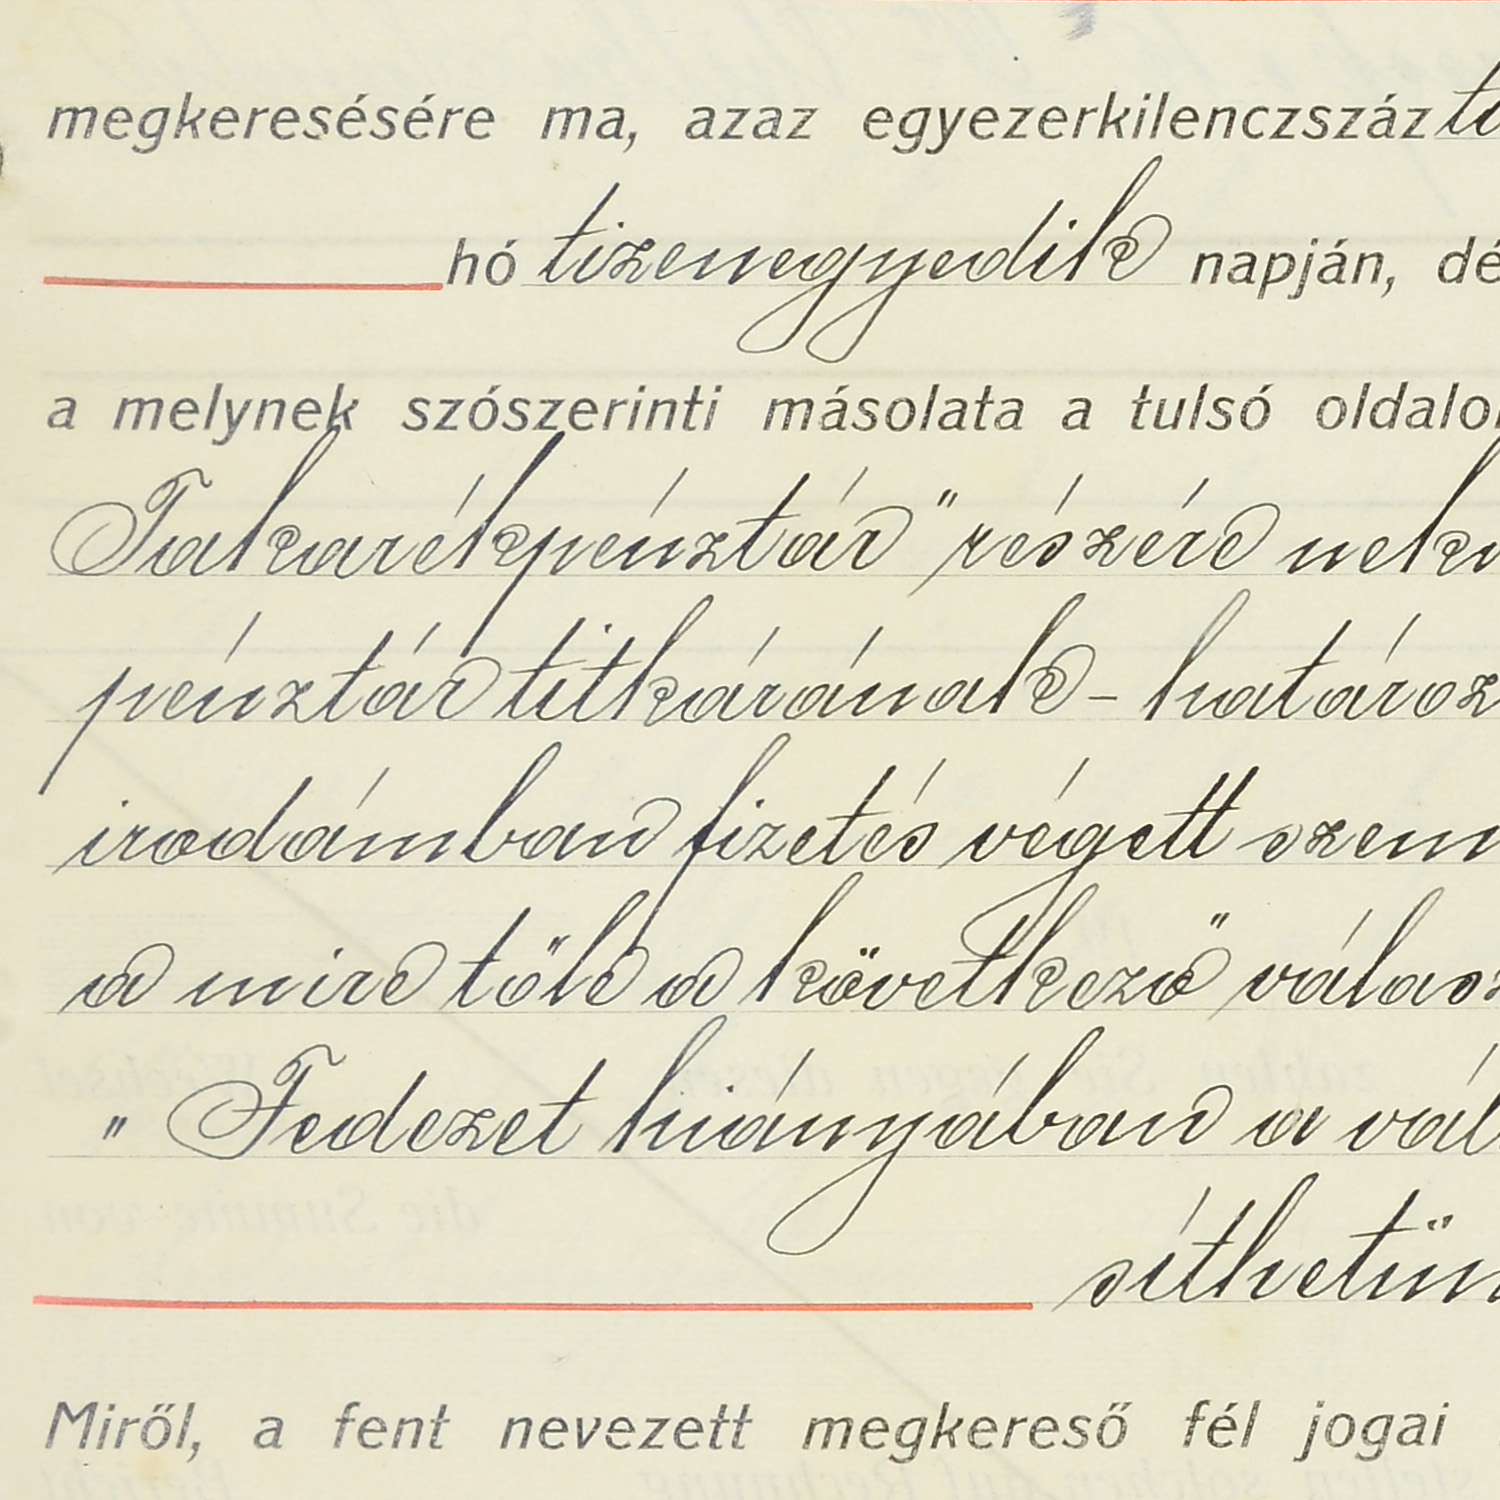 megkeresésére ma, azaz egyezerkilenczszáz
hó tizenegyedik napján, dé
a melynek szószerinti másolata a tulsó oldalon
Takarékpénztár" részére nek
pénztár titkárának - határoz
irodámban fizetés végett szem
a mire tőle a következő válasz
" Fedezet hiányában a vál
síthetün
Miről, a fent nevezett megkereső fél jogai